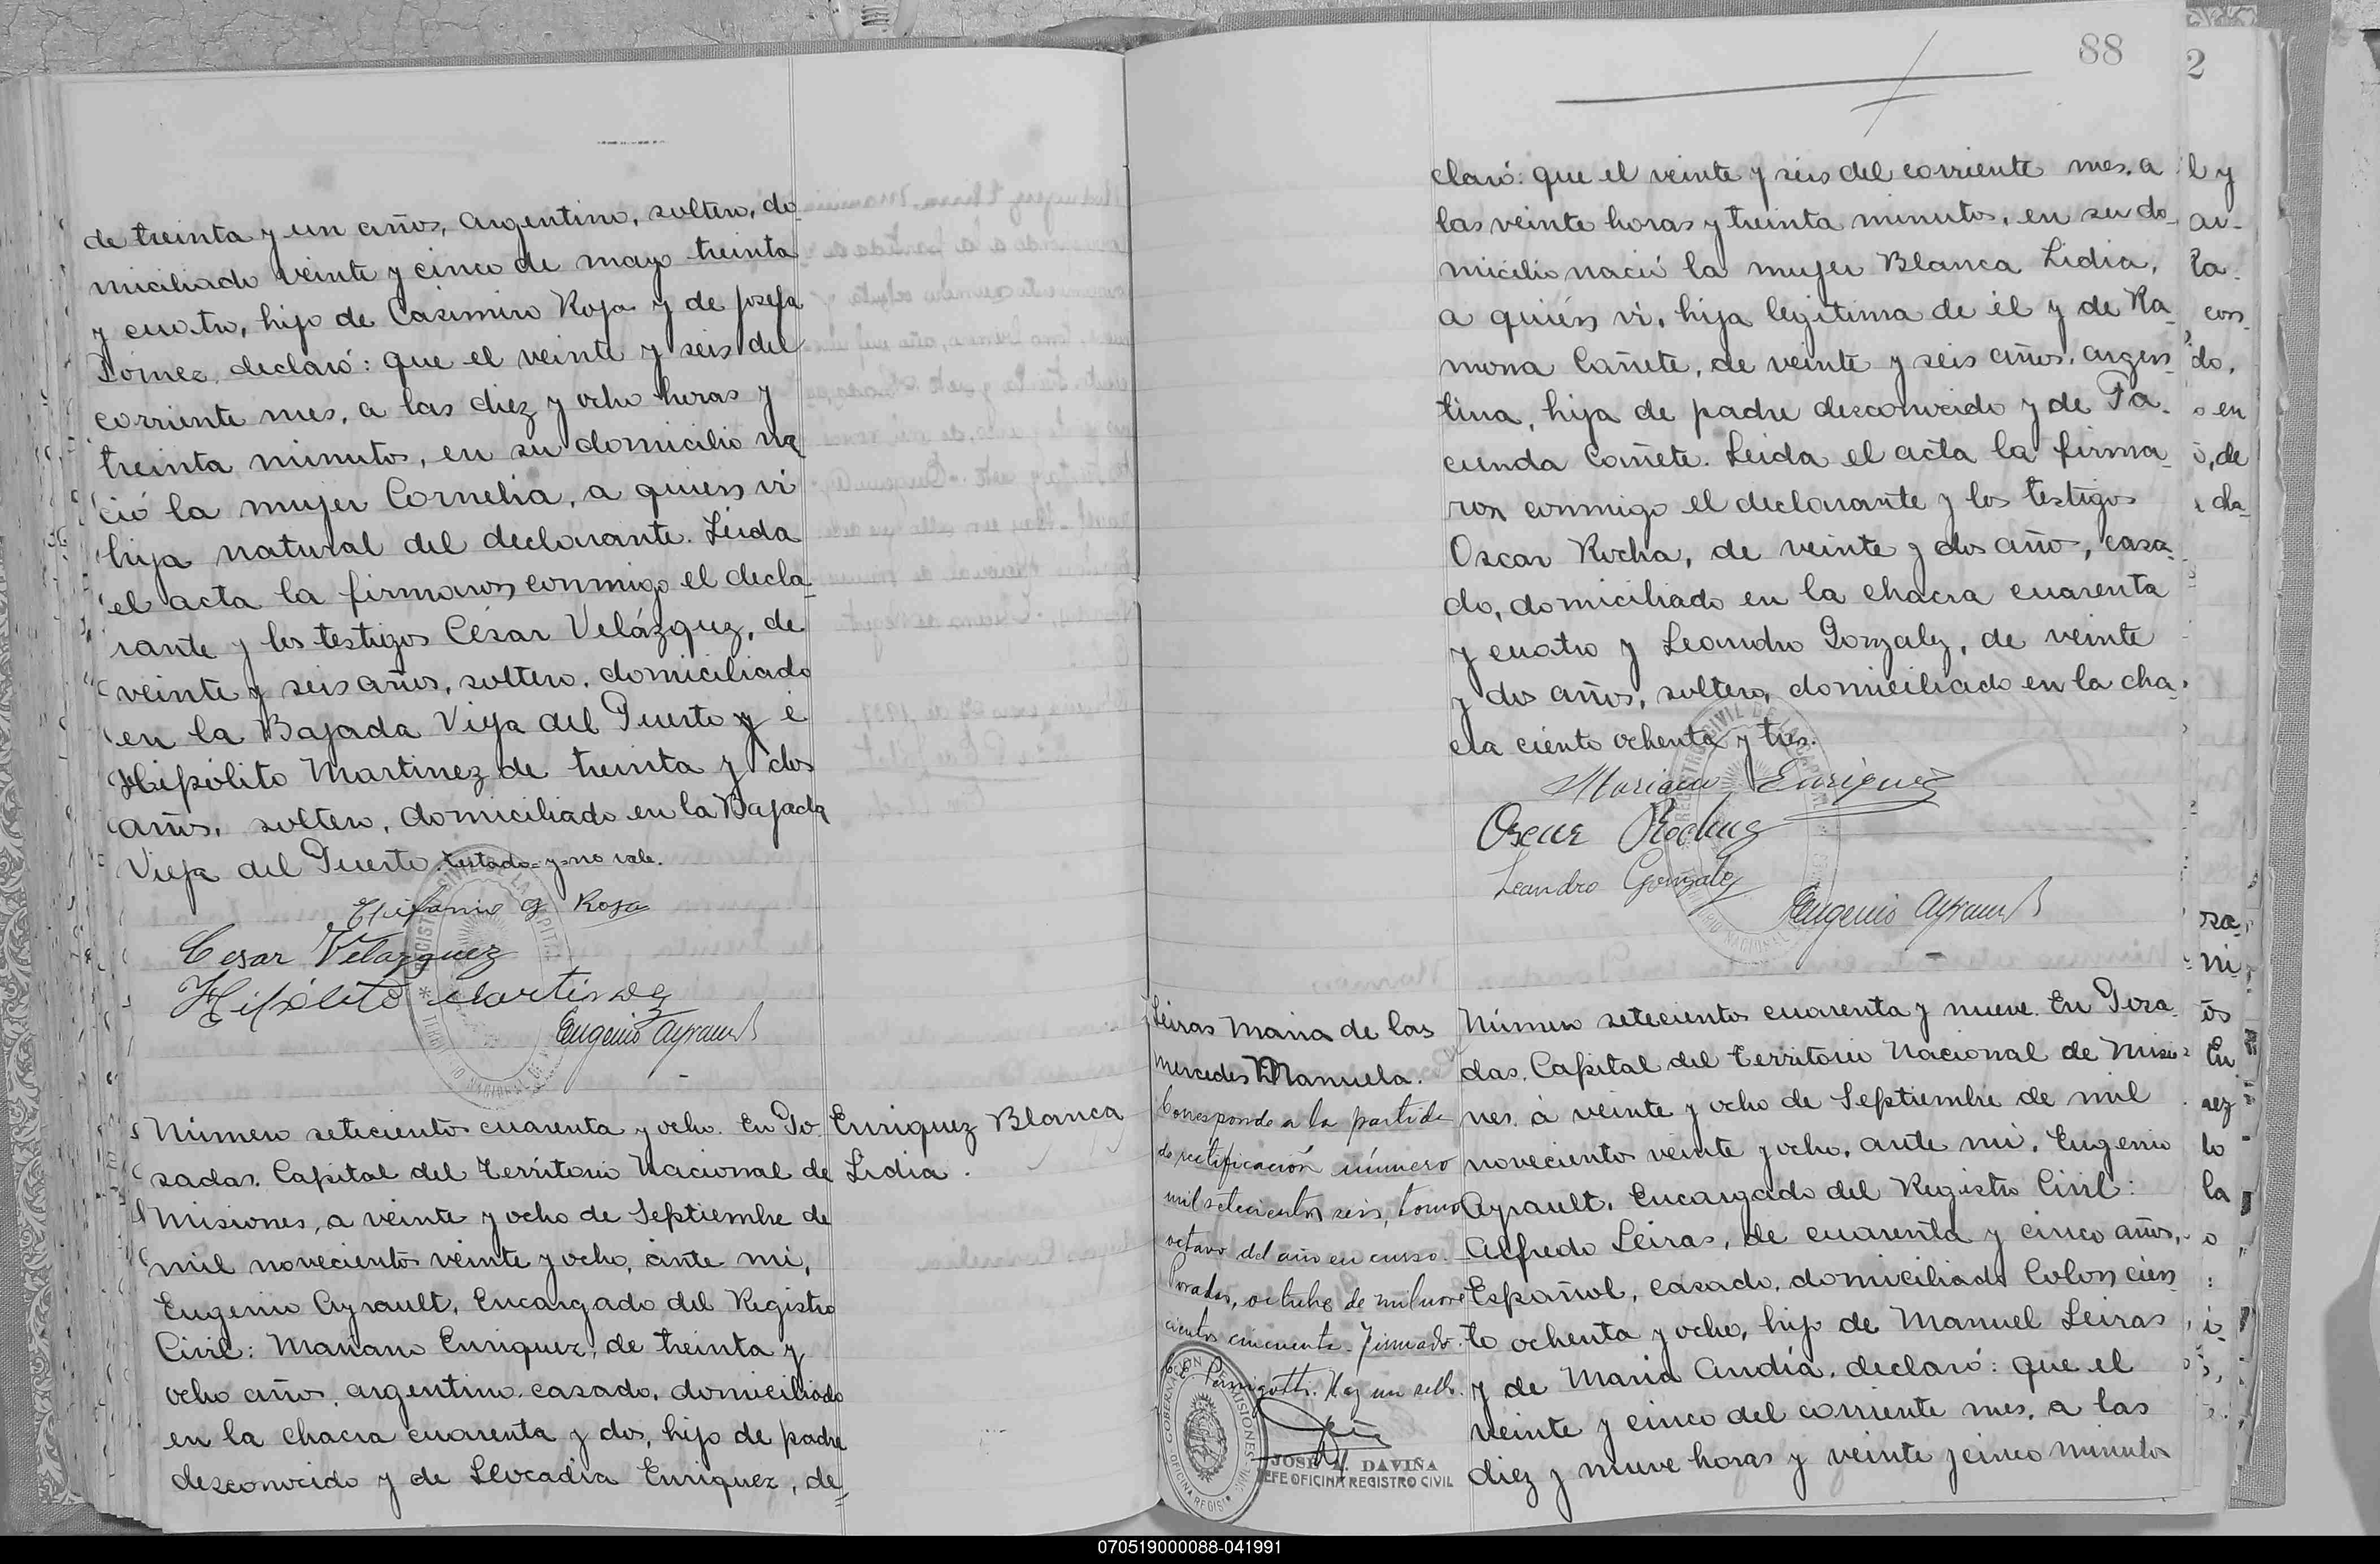 de treinta y un años, argentino, soltero, do-
miciliado veinte y cinco de mayo treinta
y cuatro, hijo de Casimiro Roja y de Josefa
Gómez, declaró: que el veinte y seis del
corriente mes, a las diez y ocho horas y
treinta minutos, en su domicilio na
ció la mujer Cornelia, a quien vi
hija natural del declarante. Leida
el acta la firmaron conmigo el decla-
rante y los testigos César Velázquez, de
veinte y seis años, soltero, domiciliado
en la Bajada Vieja del Puerto y é
Hipólito Martinez de treinta y dos
años, soltero, domiciliado en la Bajada
Vieja del Puerto. testado=y=no vale.
Epifanio G Roja
Cesar Velazquez
Hipólito Martinez
Eugenio Ayrault
Número setecientos cuarenta y ocho. En Po-
sadas, Capital del Territorio Nacional de
Misiones, a veinte y ocho de Septiembre de
mil novecientos veinte y ocho, ante mi,
Eugenio Ayrault, Encargado del Registro
Civil: Mariano Enriquez, de treinta y
ocho años, argentino, casado, domiciliado
en la chacra cuarenta y dos, hijo de padre
desconocido y de Leocadia Enriquez, de=
Enriquez Blanca
Lidia.
88
claró: que el veinte y seis del corriente mes, a
las veinte horas y treinta minutos, en su do-
micilio nació la mujer Blanca Lidia,
a quién vi, hija legitima de él y de Ra-
mona Cañete, de veinte y seis años, argen-
tina, hija de padre desconocido y de Fa-
cunda Cañete. Leida el acta la firma-
ron conmigo el declarante y los testigos
Oscar Rocha, de veinte y dos años, casa-
do, domiciliado en la chacra cuarenta
y cuatro y Leandro Gonzalez, de veinte
y dos años, soltero, domiciliado en la cha-
cra ciento ochenta y tres.
Mariano Enriquez
Oscar Rocha
Leandro Gonzalez
Eugenio Ayrault
Leiras Maria de las
Mercedes Manuela.
Corresponde a la partida
de rectificación número
mil setecientos seis, tomo
octavo del año en curso.
Posadas, octubre de mil nove
cientos cincuenta. Firmado.
Hay un sello.
JOSE A. DAVIÑA
JEFE OFICINA REGISTRO CIVIL
Número setecientos cuarenta y nueve. En Posa-
das, Capital del Territorio Nacional de Misio-
nes, á veinte y ocho de Septiembre de mil
novecientos veinte y ocho, ante mi, Eugenio
Ayrault, Encargado del Registro Civil:
Alfredo Leiras, de cuarenta y cinco años,
Español, casado, domiciliado Colon cien-
to ochenta y ocho, hijo de Manuel Leiras
y de Maria Andía, declaró: que el
veinte y cinco del corriente mes, a las
diez y nueve horas y veinte y cinco minutos
2
l y
do,
070519000088-041991